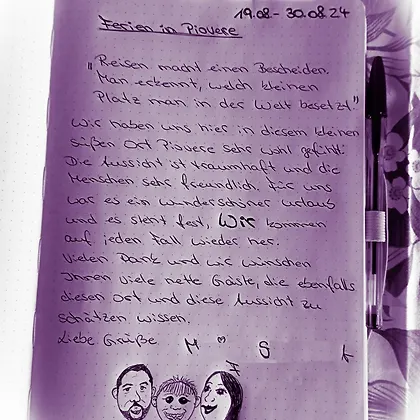 19.08 - 30.08.24
Ferien in Piovere
"Reisen macht einen Bescheiden.
Man erkennt, welch kleinen
Platz man in der Welt besetzt."
Wir haben uns hier in diesem kleinen
süßen Ort Piovere sehr wohl gefühlt.
Die Aussicht ist traumhaft und die
Menschen sehr freundlich. Für uns
war es ein wunderschöner Urlaub
und es steht fest, Wir kommen
auf jeden Fall wieder her.
Vielen Dank und wir wünschen
Ihnen viele nette Gäste, die ebenfalls
diesen Ort und diese Aussicht zu
schätzen wissen.
Liebe Grüße M ♡ S